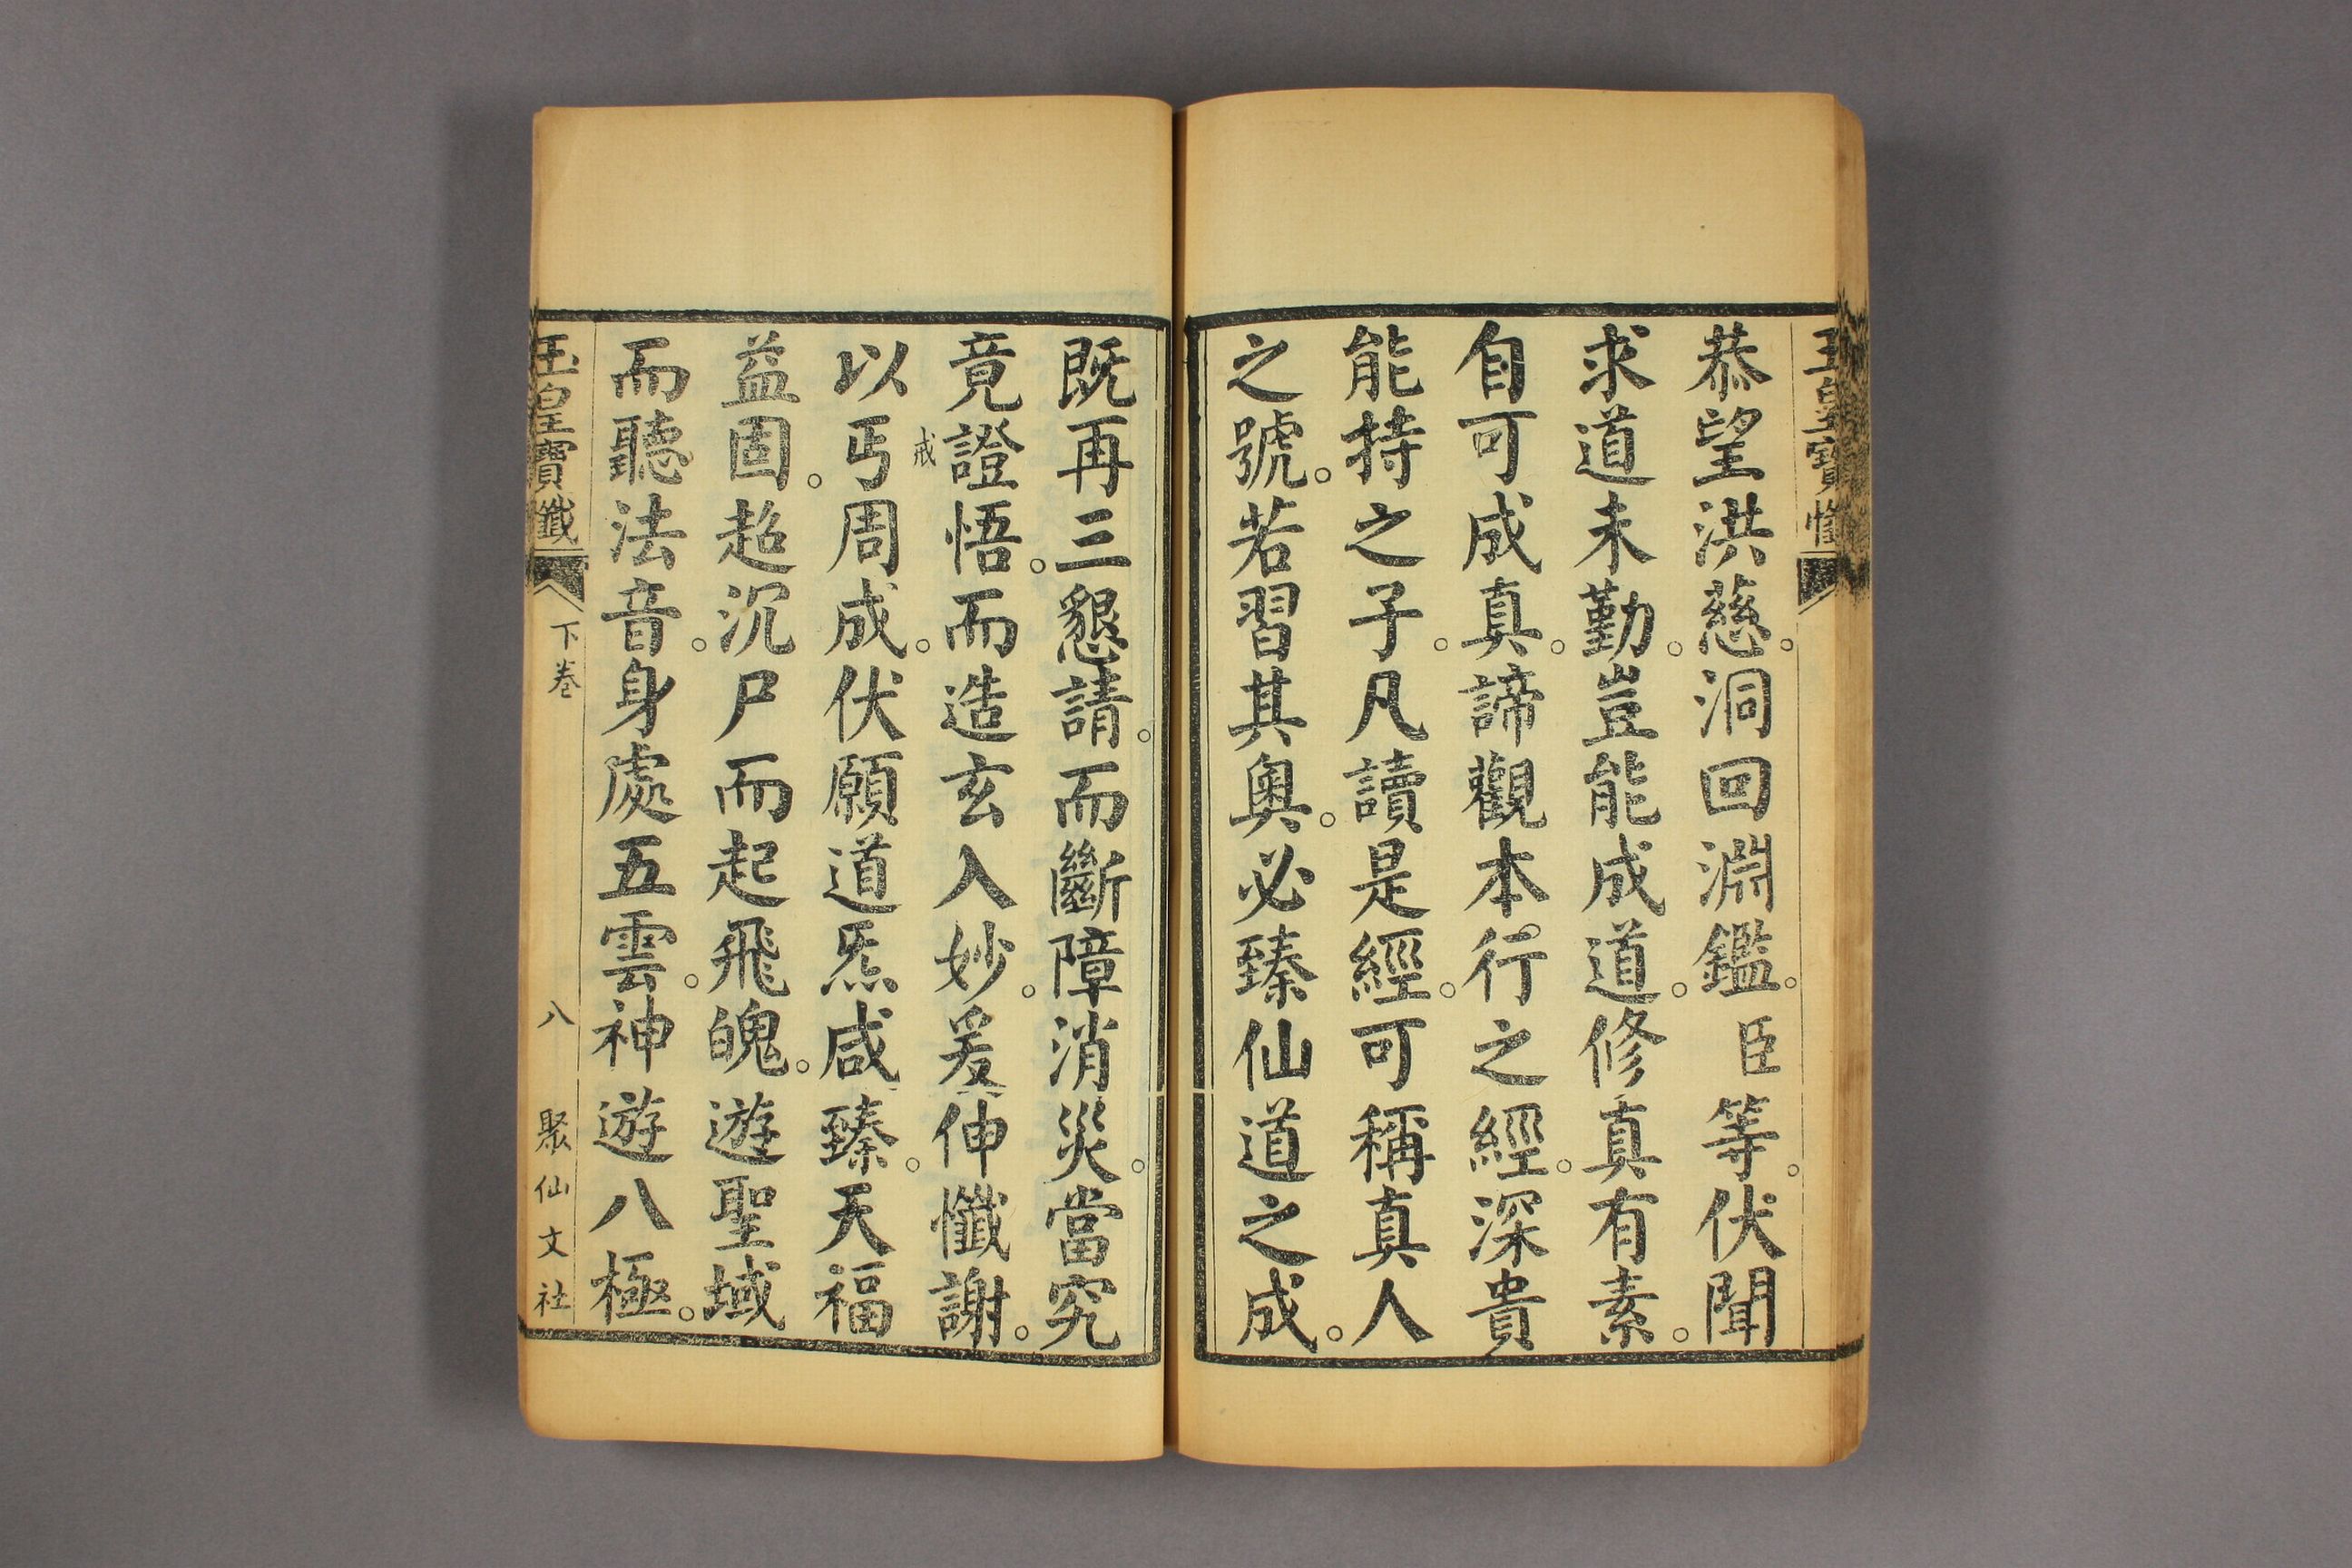 玉皇寶懺
恭望洪慈。洞回淵鑑。臣等。伏聞
求道未勤。豈能成道。修真有素。
自可成真。諦觀本。行之經。深貴
能持之子。凡讀是經。可稱真人
之號。若習其奧。必臻仙道之成。
既再三懇請。而斷障消災。當究
竟證悟。而造玄入妙。爰伸懺謝。
戒
以丐周成。伏願道炁咸臻。天福
益固。超沉尸而起飛魄。遊聖域
而聽法音。身處五雲。神遊八極。
玉皇寶懺 下卷 八 聚仙文社